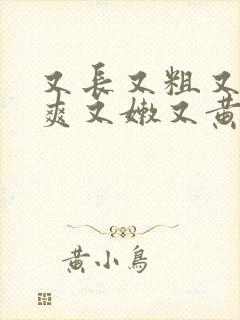 又長又粗又
爽又嫩又黃
黃小鳥